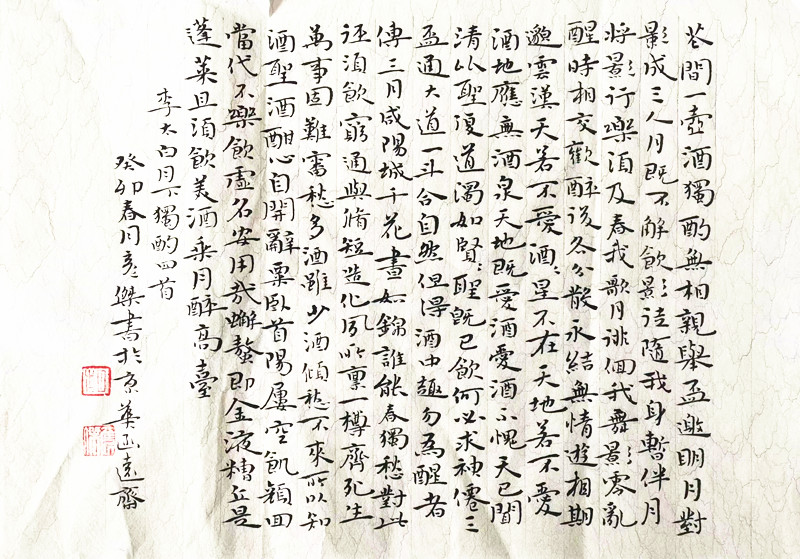 花間一壺酒獨酌無相親舉盃邀明月對
影成三人月既不解飲影徒隨我身暫伴月
將影行樂須及春我歌月徘徊我舞影零亂
醒時相交歡醉後各分散永結無情遊相期
邈雲漢天若不愛酒〻星不在天地若不愛
酒地應無酒泉天地既愛酒愛酒不愧天已聞
清比聖復道濁如賢〻聖既已飲何必求神僊三
盃通大道一斗合自然但得酒中趣勿為醒者
傳三月咸陽城千花晝如錦誰能春獨愁對此
逕須飲窮通與脩短造化夙所稟一樽齊死生
萬事固難審愁多酒雖少酒傾愁不來所以知
酒聖酒酣心自開辭粟臥首陽屢空飢顏回
當代不樂飲虛名安用哉蠏螯即金液糟丘是
蓬萊且須飲美酒乘月醉高臺
李太白月下獨酌四首
癸卯春月彥傑書於京華遠齋